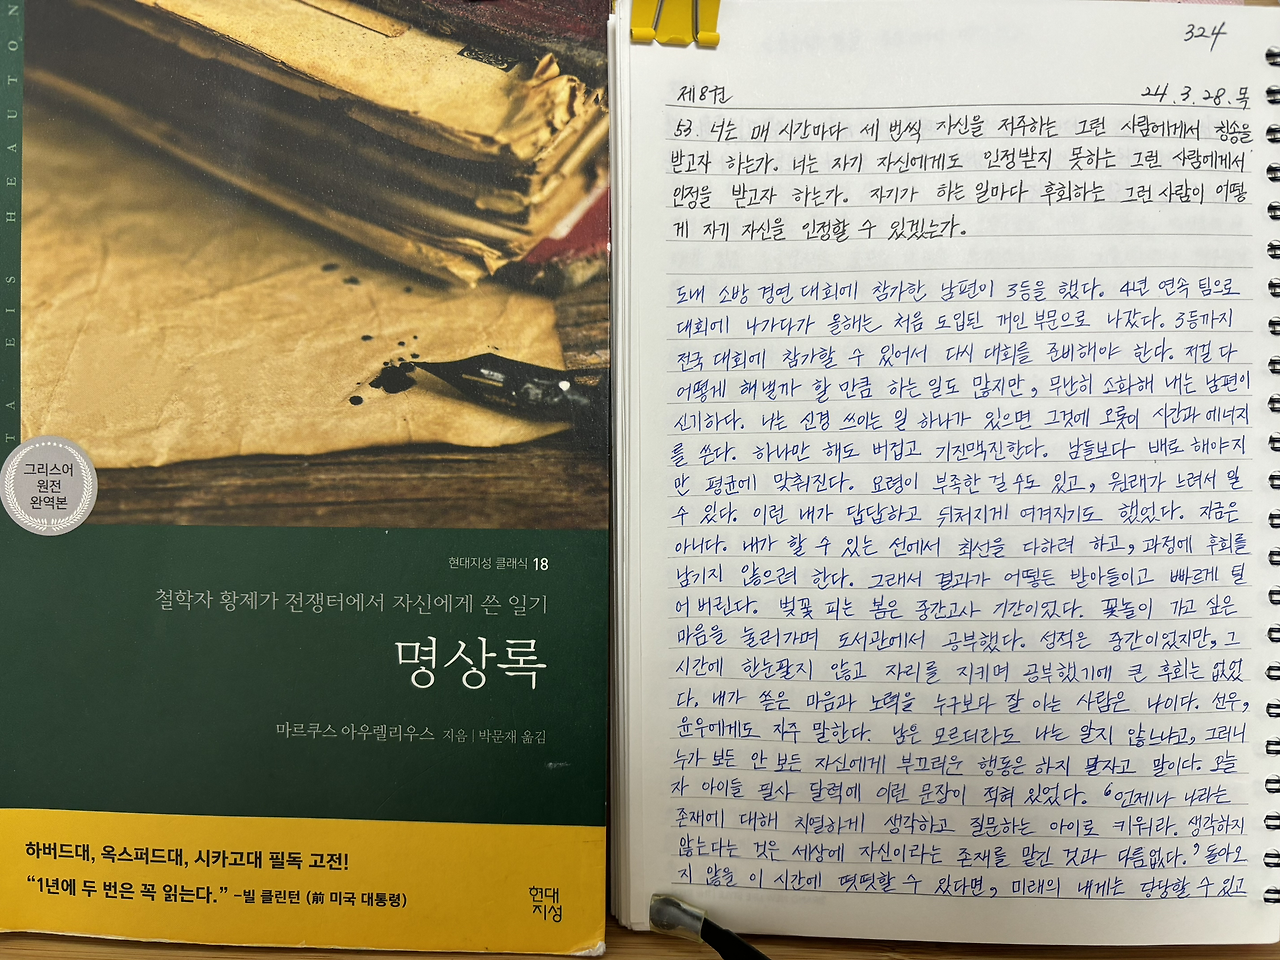 TA EIS HEAUTON
그리스어
원전
완역본
현대지성 클래식 18
철학자 황제가 전쟁터에서 자신에게 쓴 일기
명상록
마르쿠스 아우렐리우스 지음 | 박문재 옮김
하버드대, 옥스퍼드대, 시카고대 필독 고전!
“1년에 두 번은 꼭 읽는다.” -빌 클린턴 (前 미국 대통령)
현대
지성
324
제8권 24.3.28.목
53. 너는 매 시간마다 세 번씩 자신을 저주하는 그런 사람에게서 칭송을
받고자 하는가. 너는 자기 자신에게도 인정받지 못하는 그런 사람에게서
인정을 받고자 하는가. 자기가 하는 일마다 후회하는 그런 사람이 어떻
게 자기 자신을 인정할 수 있겠는가.
도내 소방 경연 대회에 참가한 남편이 3등을 했다. 4년 연속 팀으로
대회에 나가다가 올해는 처음 도입된 개인 부문으로 나갔다. 3등까지
전국 대회에 참가할 수 있어서 다시 대회를 준비해야 한다. 저걸 다
어떻게 해낼까 할 만큼 하는 일도 많지만, 무난히 소화해 내는 남편이
신기하다. 나는 신경 쓰이는 일 하나가 있으면 그것에 오롯이 시간과 에너지
를 쓴다. 하나만 해도 버겁고 기진맥진한다. 남들보다 배로 해야지
만 평균에 맞춰진다. 요령이 부족한 걸 수도 있고, 원래가 느려서 일
수 있다. 이런 내가 답답하고 뒤처지게 여겨지기도 했었다. 지금은
아니다. 내가 할 수 있는 선에서 최선을 다하려 하고, 과정에 후회를
남기지 않으려 한다. 그래서 결과가 어떻든 받아들이고 빠르게 털
어 버린다. 벚꽃 피는 봄은 중간고사 기간이었다. 꽃놀이 가고 싶은
마음을 눌러가며 도서관에서 공부했다. 성적은 중간이었지만, 그
시간에 한눈팔지 않고 자리를 지키며 공부했기에 큰 후회는 없었
다. 내가 쏟은 마음과 노력을 누구보다 잘 아는 사람은 나이다. 선우,
윤우에게도 자주 말한다. 남은 모르더라도 나는 알지 않느냐고, 그러니
누가 보든 안 보든 자신에게 부끄러운 행동은 하지 말자고 말이다. 오늘
자 아이들 필사 달력에 이런 문장이 적혀 있었다. ‘언제나 나라는
존재에 대해 치열하게 생각하고 질문하는 아이로 키워라. 생각하지
않는다는 것은 세상에 자신이라는 존재를 맡긴 것과 다름없다.’ 돌아오
지 않을 이 시간에 떳떳할 수 있다면, 미래의 내게는 당당할 수 있고